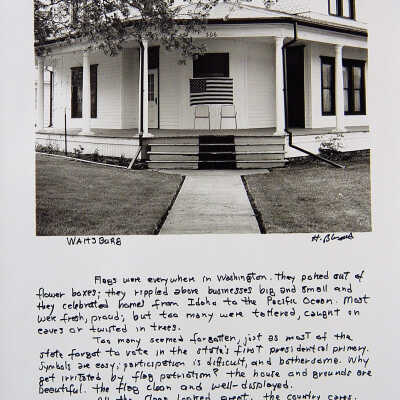 506
WAITSBURG
Flags were everywhere in Washington. They poked out of
flower boxes; they rippled above businesses big and small and
they celebrated homes from Idaho to the Pacific Ocean. Most
were fresh, proud; but too many were tattered, caught on
eaves or twisted in trees.
Too many seemed forgotten, just as most of the
state forgot to vote in the state's first presidential primary.
Symbols are easy; participation is difficult, and bothersome. Why
get irritated by flag patriotism? the house and grounds are
beautiful. the flag clean and well-displayed.
All the flags looked great. the country cares.